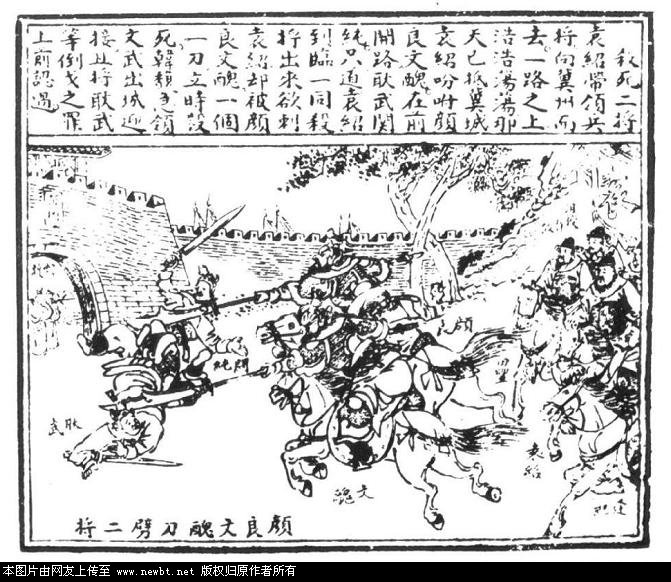 殺死二將
袁紹帶領兵
將向冀州而
去一路之上
浩浩蕩蕩那
天已抵冀城
袁紹吩咐顏
良文醜在前
開路耿武関
純只道袁紹
到臨一同殺
將出來欲刺
袁紹却被顏
良文醜一個
一刀立時殺
死韓馥
領
文武出城迎
接且將耿武
等倒戈之罪
上前認過
顏良
関純
耿武
文醜
袁紹
顏良文醜刀劈二將
本图片由网友上传至 www.newbt.net 版权归原作者所有